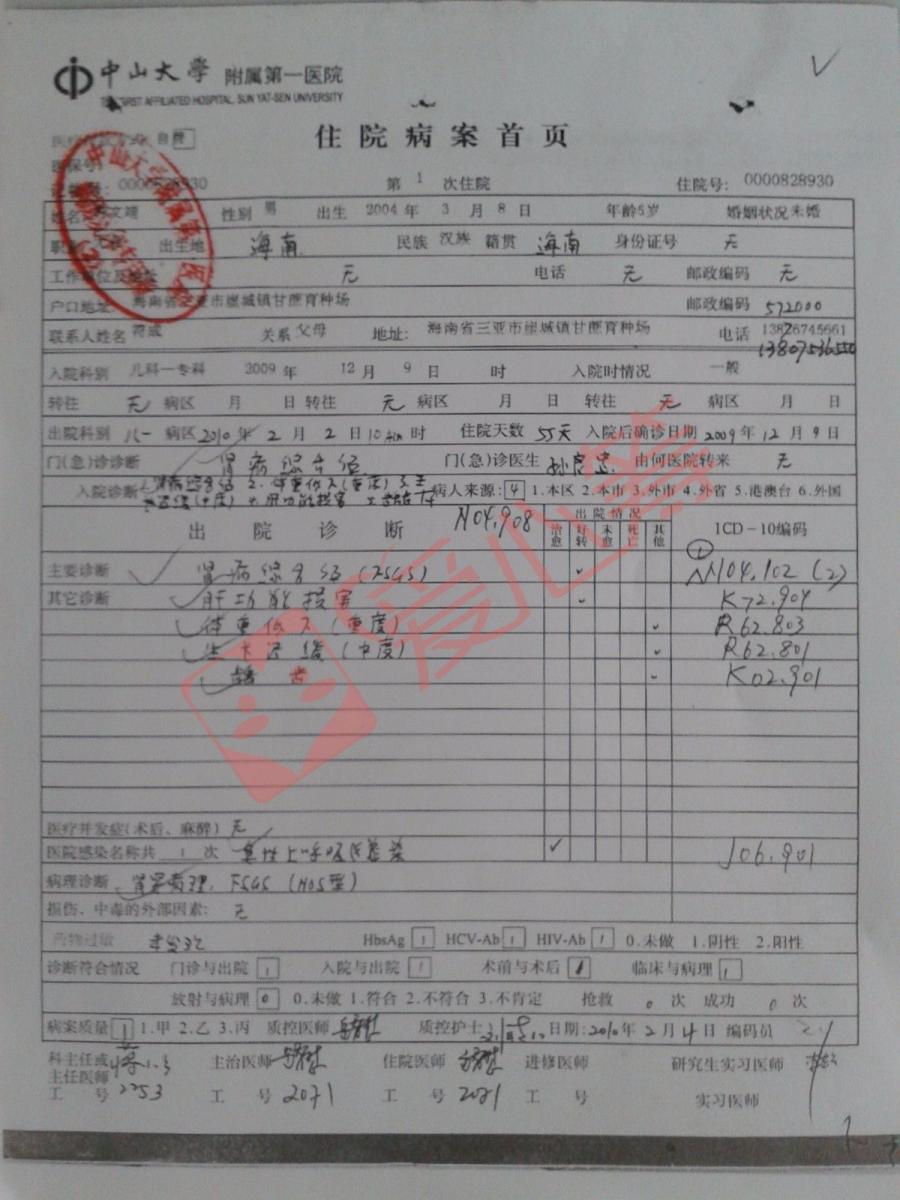 中山大学 附属第一医院
THE FIRST AFFILIATED HOSPITAL, SUN YAT-SEN UNIVERSITY
住院病案首页
0000828930 第 1 次住院 住院号: 0000828930
姓名 文靖 性别 男 出生 2004 年 3 月 8 日 年龄5岁 婚姻状况未婚
出生地 海南 民族 汉族 籍贯 海南 身份证号 无
工作单位及地址 无 电话 无 邮政编码 无
户口地址: 海南省三亚市崖城镇甘蔗育种场 邮政编码 572000
联系人姓名 符成 关系 父母 地址: 海南省三亚市崖城镇甘蔗育种场 电话 13826745661
13807536550
入院科别 儿科一专科 2009 年 12 月 9 日 时 入院时情况 一般
转往 无 病区 月 日 转往 无 病区 月 日 转往 无 病区 月 日
出院科别 儿一 病区 2010 年 2 月 2 日 10Am 时 住院天数 55天 入院后确诊日期 2009 年 12 月 9 日
门(急)诊诊断 肾病综合征 门(急)诊医生 由何医院转来 无
入院诊断 病人来源: 4 1.本区 2.本市 3.外市 4.外省 5.港澳台 6.外国
出院诊断 N04.908 出院情况 ICD-10编码
治愈 好转 未愈 死亡 其他
主要诊断 肾病综合征(FSGS) N04.102 (2)
其它诊断 肝功能损害 K72.904
体重低下(重度) R62.803
生长迟缓(中度) R62.801
龋齿 K02.901
医疗并发症(术后、麻醉) 无
医院感染名称共 1 次 急性上呼吸道感染 J06.901
病理诊断 FSGS (NOS型)
损伤、中毒的外部因素: 无
药物过敏 未发现 HbsAg 1 HCV-Ab 1 HIV-Ab 1 0.未做 1.阴性 2.阳性
诊断符合情况 门诊与出院 1 入院与出院 1 术前与术后 临床与病理 1
放射与病理 0 0.未做 1.符合 2.不符合 3.不肯定 抢救 0 次 成功 0 次
病案质量 1 1.甲 2.乙 3.丙 质控医师 质控护士 日期: 2010 年 2 月 4 日 编码员
科主任或 主治医师 住院医师 进修医师 研究生实习医师
主任医师
工号 2253 工号 2071 工号 2071 工号 实习医师
爱心筹